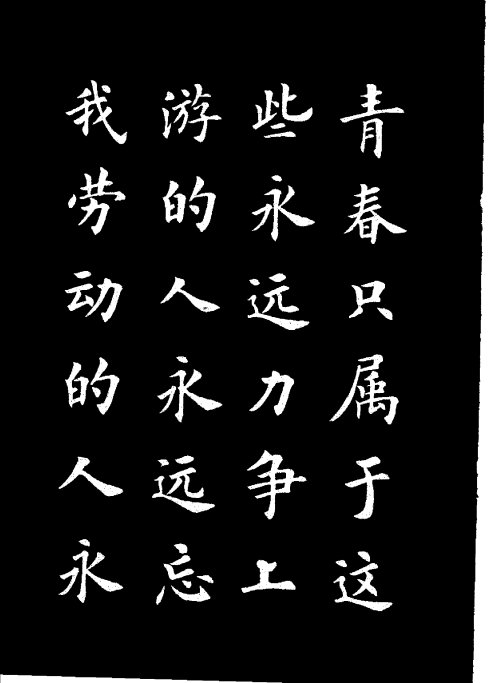 青春只属于这
些永远力争上
游的人永远忘
我劳动的人永